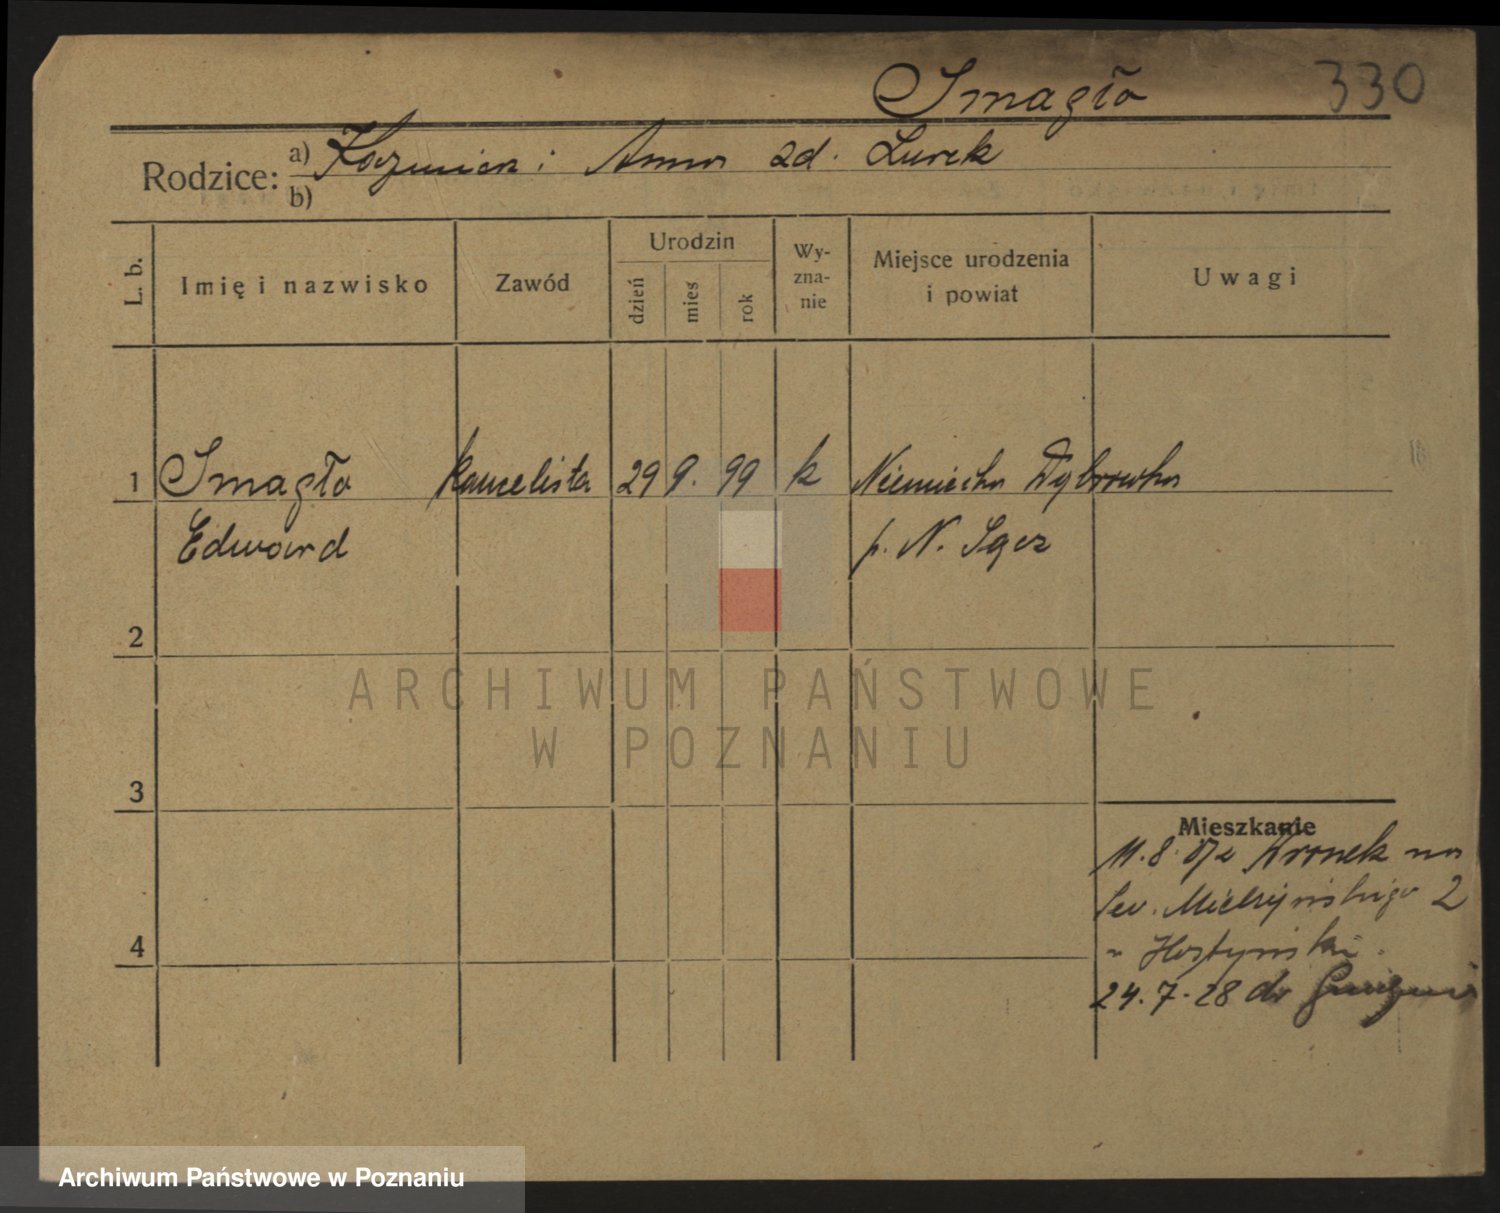 Smagło 330
Rodzice: a) Kazimierz i Anna zd. Lurek
b)
L. b. Imię i nazwisko Zawód Urodzin dzień mies rok Wy-zna-nie Miejsce urodzenia i powiat Uwagi
1 Smagło kancelista 29 9. 99 k Niemiecka Dąbrówka
Edward p. N. Sącz
2
ARCHIWUM PAŃSTWOWE
W POZNANIU
3
Mieszkanie
11. 8. na
Sew. Mielżyńskiego 2
4
" Hostyński
24. 7. 28 do
Archiwum Państwowe w Poznaniu